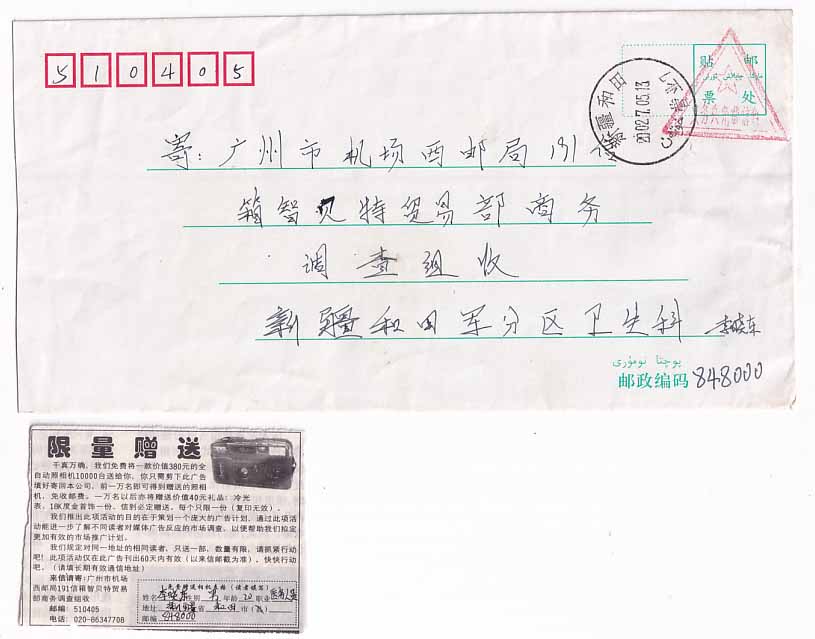 510405
贴 邮
票 处
新疆和田
2002.7.05.13
寄:广州市机场西邮局191信
箱智贝特贸易部商务
调查组收
新疆和田军分区卫生科 李晓东
پوچتا نومۇرى
邮政编码 848000
限量赠送
千真万确,我们免费将一款价值380元的全
自动照相机10000台送给你,你只需剪下此广告
填好寄回本公司,前一万名即可得到赠送的照相
机,免收邮费。一万名以后亦将赠送价值40元礼品:冷光
表,18K度金首饰一份,信到必定赠送,每个只限一份(复印无效)。
我们推出此项活动的目的在于策划一个庞大的广告计划,通过此项活
动能进一步了解不同读者对媒体广告反应的市场调查,以便帮助我们拟定
更加有效的市场推广计划。
我们规定对同一地址的相同读者,只送一部,数量有限,请抓紧行动
吧!此项活动仅在此广告刊出60天内有效(以来信邮戳为准),快快行动
吧,(请填长期有效通信地址)
来信请寄:广州市机场
西邮局191信箱智贝特贸易
部商务调查组收
邮编:510405
电话:020-86347708
免费赠送相机表格(读者填写)
姓名 李晓东 性别 男 年龄 20 职业 医务人员
地址 新疆 省 和田 市(县)
邮编 848000